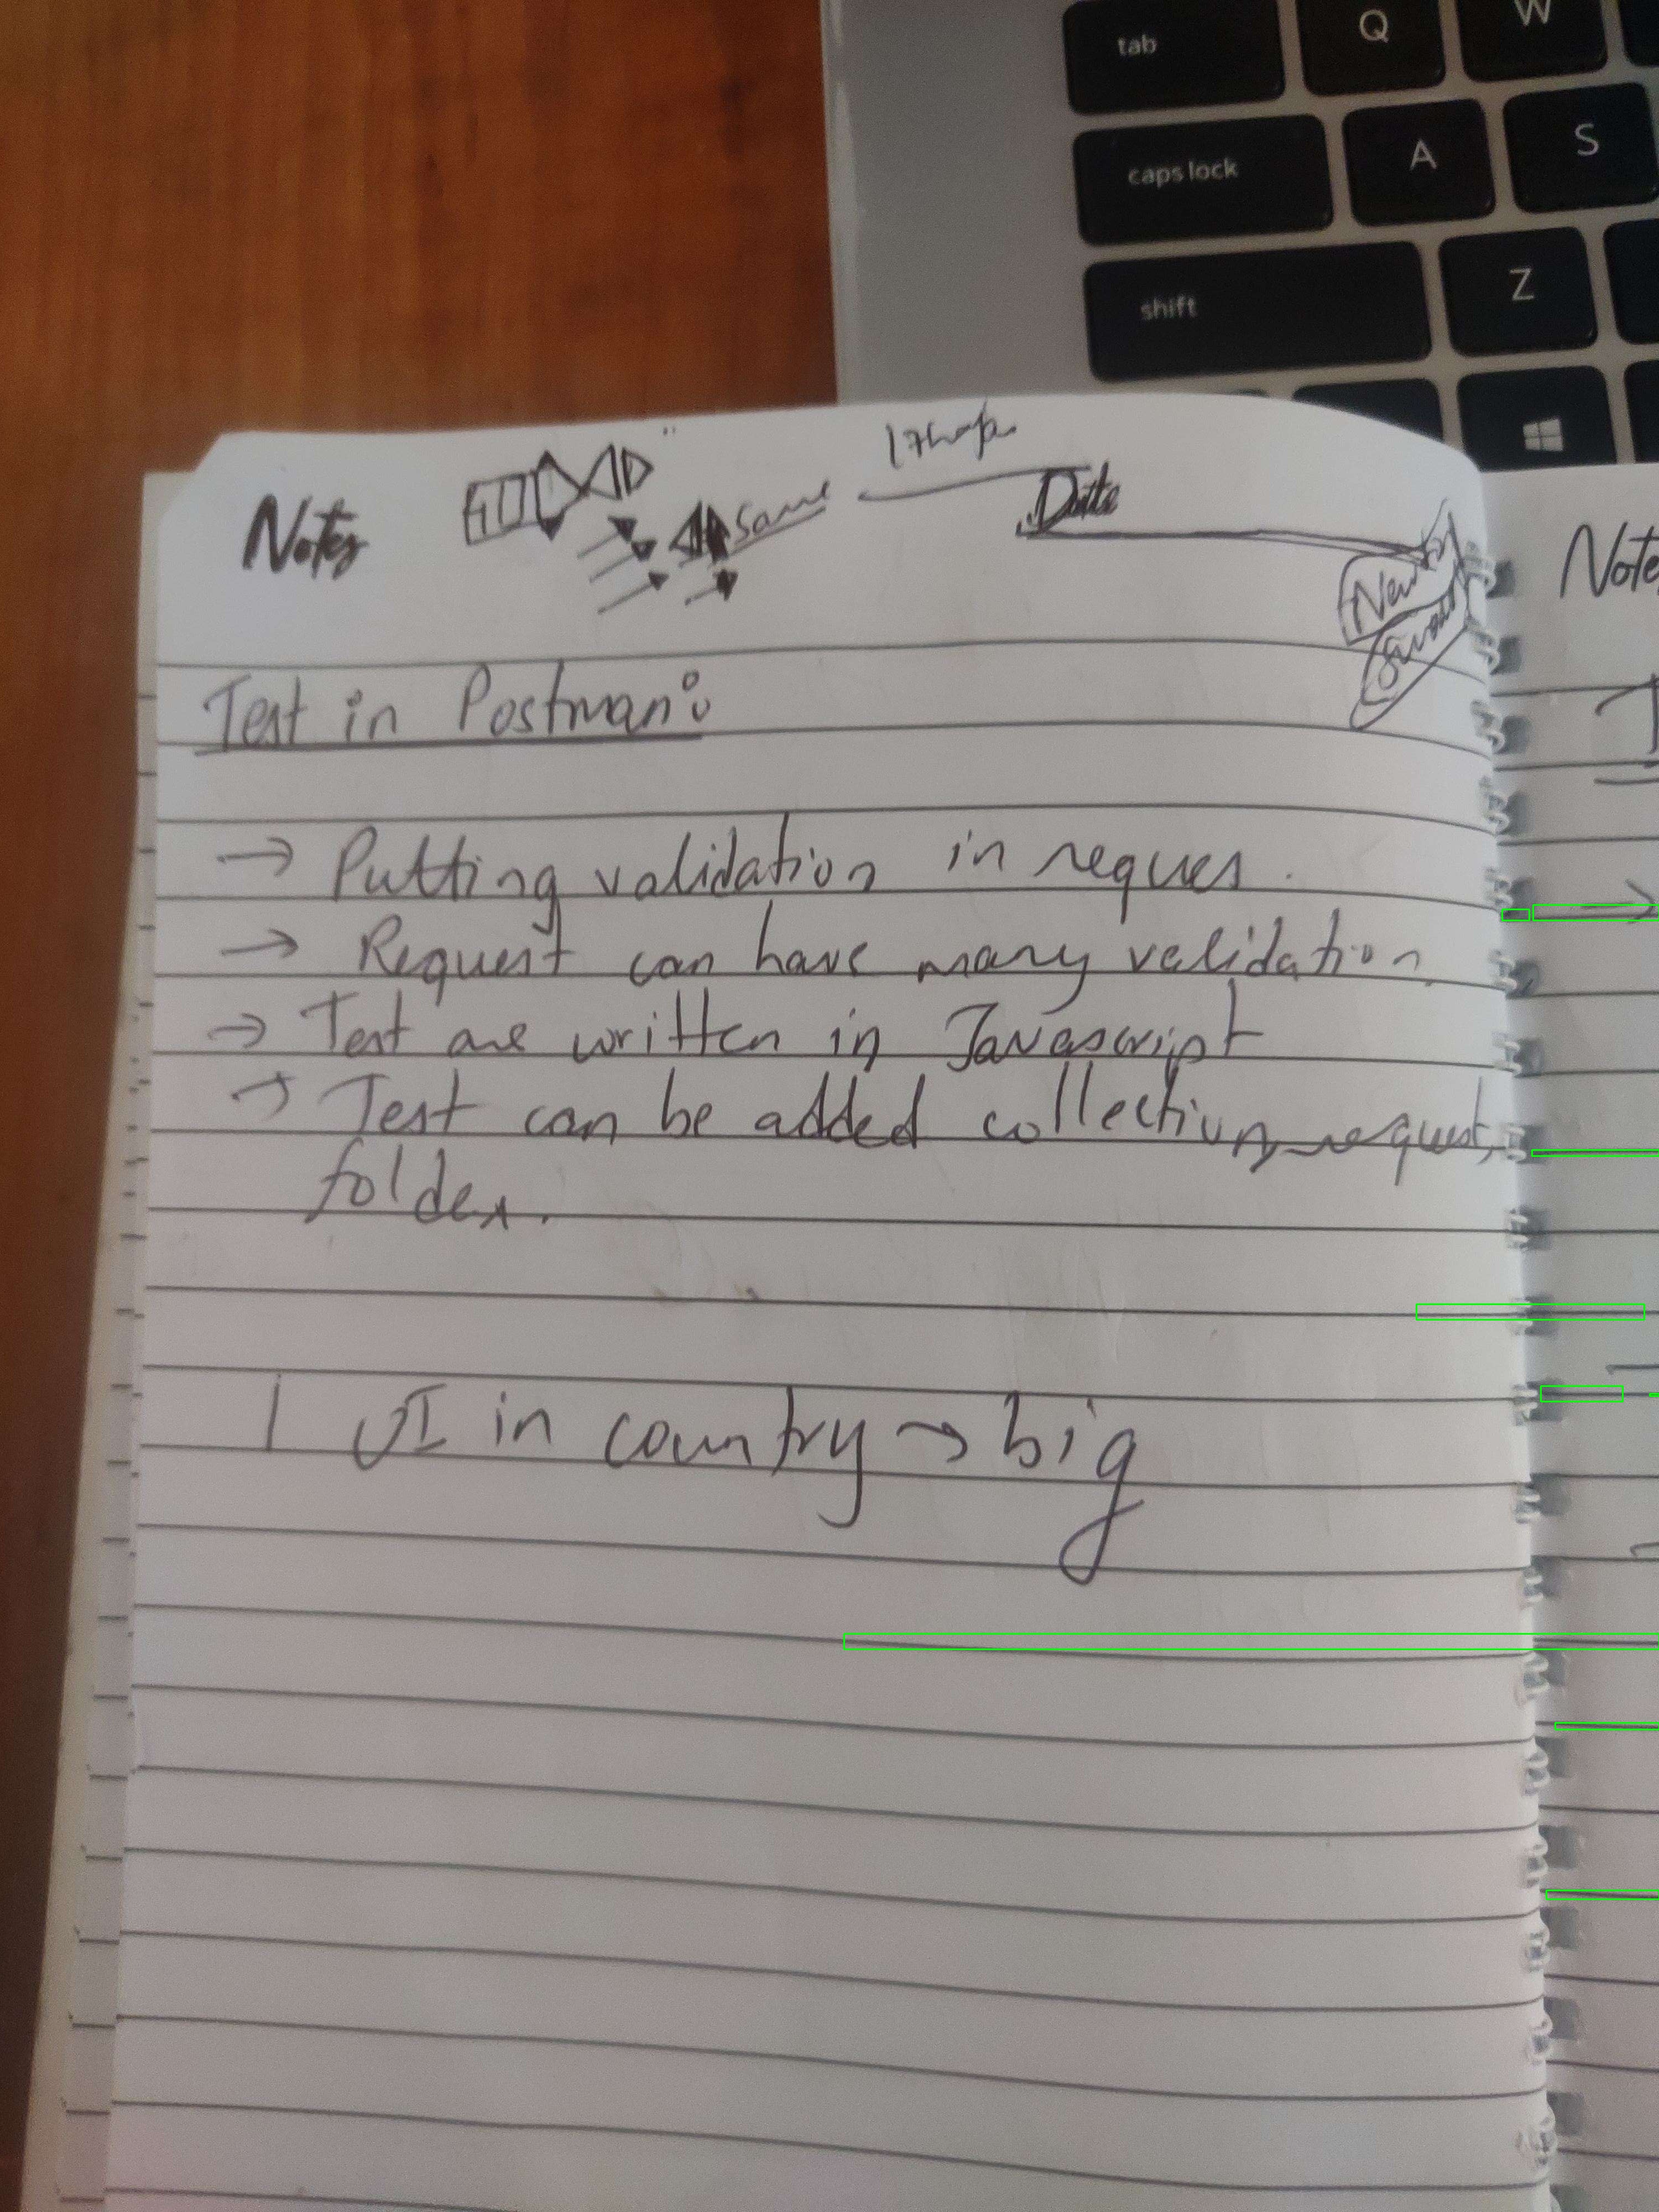 tab Q W
caps lock A S
shift Z
Notes Same Date
Note
Test in Postman:
→ Putting validation in reques.
→ Request can have many validation
→ Test are written in Javascript
→ Test can be added collection, request,
folder.
1 UI in country → big